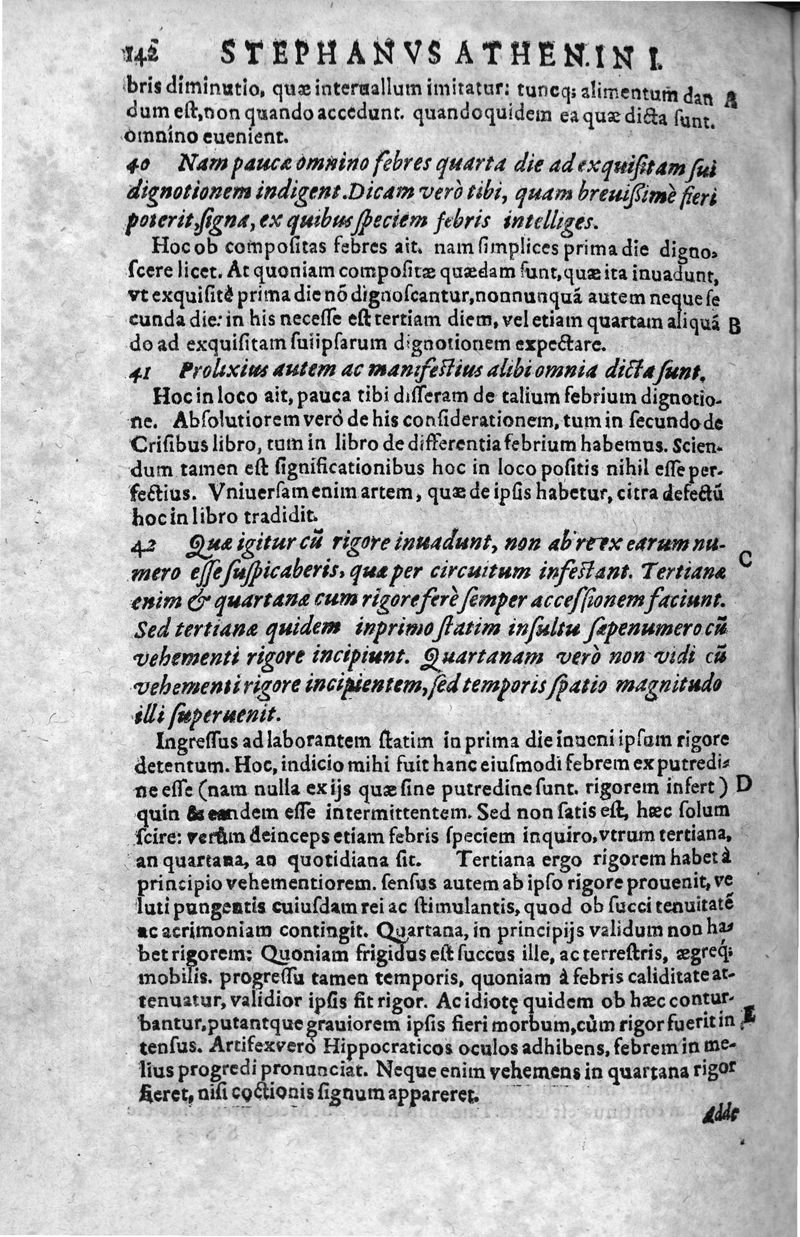 142 STEPHANVS ATHEN. IN I.
bris diminutio, quæ interuallum imitatur: tuncq; alimentum dan A
dum eſt, non quando accedunt. quandoquidem ea quæ dicta ſunt.
omnino euenient.
40 Nam paucæ omnino febres quarta die ad exquiſitam ſui
dignotionem indigent. Dicam verò tibi, quam breuiſſimè fieri
poterit, ſigna, ex quibus ſpeciem febris intelliges.
Hoc ob compoſitas febres ait. nam ſimplices prima die digno,
ſcere licet. At quoniam compoſitæ quædam ſunt, quæ ita inuadunt,
vt exquiſitè prima die nõ dignoſcantur, nonnunquã autem neque ſe
cunda die: in his neceſſe eſt tertiam diem, vel etiam quartam aliquã B
do ad exquiſitam ſuiipſarum dignotionem expectare.
41 Prolixius autem ac manifeſtius alibi omnia dicta ſunt.
Hoc in loco ait, pauca tibi diſſeram de talium febrium dignotio-
ne. Abſolutiorem verò de his conſiderationem, tum in ſecundo de
Criſibus libro, tum in libro de differentia febrium habemus. Scien-
dum tamen eſt ſignificationibus hoc in loco poſitis nihil eſſe per-
fectius. Vniuerſam enim artem, quæ de ipſis habetur, citra defectũ
hoc in libro tradidit.
42 Quæ igitur cũ rigore inuadunt, non ab re ex earum nu-
mero eſſe ſuſpicaberis, quæ per circuitum infeſtant. Tertianæ C
enim & quartanæ cum rigore ferè ſemper acceſſionem faciunt.
Sed tertianæ quidem in primo ſtatim inſultu ſæpenumero cũ
vehementi rigore incipiunt. Quartanam verò non vidi cũ
vehementi rigore incipientem, ſed temporis ſpatio magnitudo
illi ſuperuenit.
Ingreſſus ad laborantem ſtatim in prima die inueni ipſum rigore
detentum. Hoc, indicio mihi fuit hanc eiuſmodi febrem ex putredi-
ne eſſe (nam nulla ex ijs quæ ſine putredine ſunt. rigorem infert) D
quin & eandem eſſe intermittentem. Sed non ſatis eſt, hæc ſolum
ſcire: verùm deinceps etiam febris ſpeciem inquiro, vtrum tertiana,
an quartana, an quotidiana ſit. Tertiana ergo rigorem habet à
principio vehementiorem. ſenſus autem ab ipſo rigore prouenit, ve
luti pungentis cuiuſdam rei ac ſtimulantis, quod ob ſucci tenuitatẽ
ac acrimoniam contingit. Quartana, in principijs validum non ha-
bet rigorem: Quoniam frigidus eſt ſuccus ille, ac terreſtris, ægreq́;
mobilis. progreſſu tamen temporis, quoniam à febris caliditate at-
tenuatur, validior ipſis fit rigor. Ac idiotę quidem ob hæc contur-
bantur, putantque grauiorem ipſis fieri morbum, cùm rigor fuerit in E
tenſus. Artifex verò Hippocraticos oculos adhibens, febrem in me-
lius progredi pronunciat. Neque enim vehemens in quartana rigor
fieret, niſi coctionis ſignum appareret.
Adde